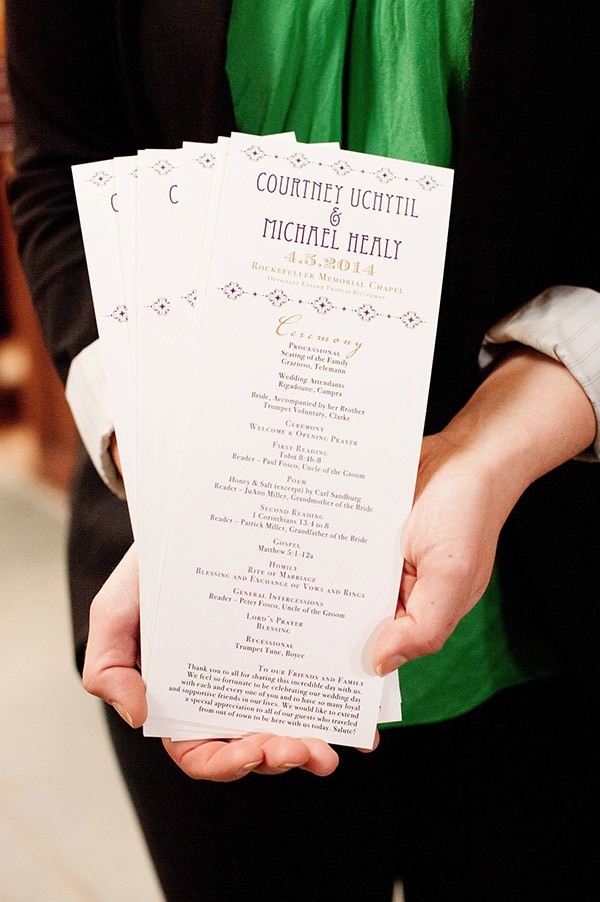 COURTNEY UCHYTIL
&
MICHAEL HEALY
4.5.2014
ROCKEFELLER MEMORIAL CHAPEL
OFFICIANT FATHER FRANCIS BITTERMAN
Ceremony
PROCESSIONAL
Seating of the Family
Grazioso, Telemann
Wedding Attendants
Rigadoune, Campra
Bride, Accompanied by her Brother
Trumpet Voluntary, Clarke
CEREMONY
WELCOME & OPENING PRAYER
FIRST READING
Tobit 8:4b-8
Reader – Paul Fosco, Uncle of the Groom
POEM
Honey & Salt (excerpt) by Carl Sandburg
Reader – JuAnn Miller, Grandmother of the Bride
SECOND READING
1 Corinthians 13:4 to 8
Reader – Patrick Miller, Grandfather of the Bride
GOSPEL
Matthew 5:1-12a
HOMILY
RITE OF MARRIAGE
BLESSING AND EXCHANGE OF VOWS AND RINGS
GENERAL INTERCESSIONS
Reader – Peter Fosco, Uncle of the Groom
LORD'S PRAYER
BLESSING
RECESSIONAL
Trumpet Tune, Boyce
TO OUR FRIENDS AND FAMILY
Thank you to all for sharing this incredible day with us.
We feel so fortunate to be celebrating our wedding day
with each and every one of you and to have so many loyal
and supportive friends in our lives. We would like to extend
a special appreciation to all of our guests who traveled
from out of town to be here with us today. Salute!
C
C